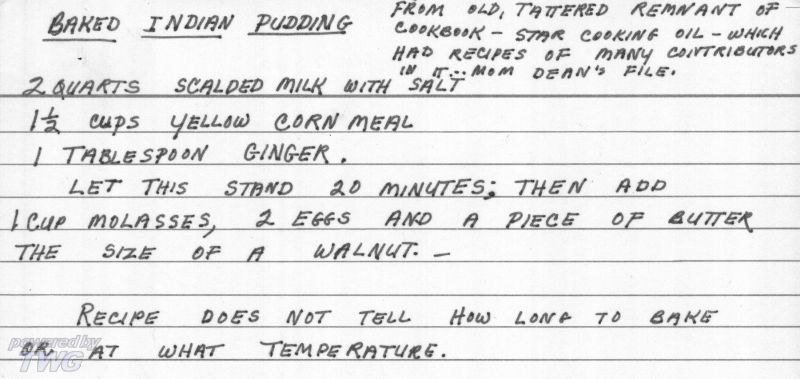 BAKED INDIAN PUDDING
FROM OLD, TATTERED REMNANT OF
COOKBOOK - STAR COOKING OIL - WHICH
HAD RECIPES OF MANY CONTRIBUTORS
IN IT... MOM DEAN'S FILE.
2 QUARTS SCALDED MILK WITH SALT
1 1/2 CUPS YELLOW CORN MEAL
1 TABLESPOON GINGER.
LET THIS STAND 20 MINUTES; THEN ADD
1 CUP MOLASSES, 2 EGGS AND A PIECE OF BUTTER
THE SIZE OF A WALNUT. -
RECIPE DOES NOT TELL HOW LONG TO BAKE
OR AT WHAT TEMPERATURE.
powered by
TWG